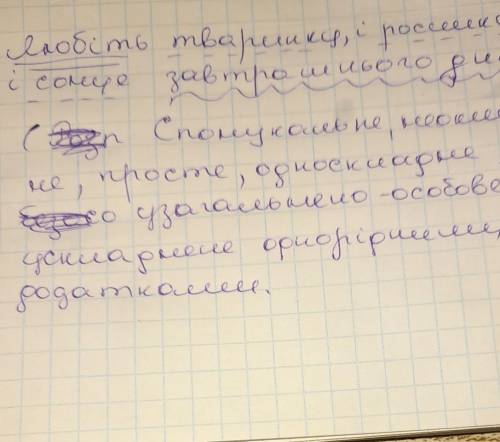 Любіть тваринку, і рослинку
і сонце завтрашнього дн
( п Спонукальне, неокли
не, просте, односкладне
со узагальнено-особове
ускладнене однорідними
додатками.